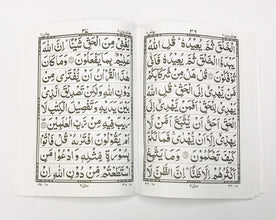 الْخَلْقَ ثُمَّ يُعِيْدُهٗ ؕ قُلِ اللّٰهُ
يَبْدَؤُا الْخَلْقَ ثُمَّ يُعِيْدُهٗ فَاَنّٰى
تُؤْفَكُوْنَ قُلْ هَلْ مِنْ شُرَكَآئِكُمْ
مَّنْ يَّهْدِيْۤ اِلَى الْحَقِّ ؕ قُلِ اللّٰهُ
يَهْدِيْ لِلْحَقِّ ؕ اَفَمَنْ يَّهْدِيْۤ اِلَى
الْحَقِّ اَحَقُّ اَنْ يُّتَّبَعَ اَمَّنْ لَّا
يَهِدِّيْۤ اِلَّاۤ اَنْ يُّهْدٰى ۚ فَمَا لَكُمْ
كَيْفَ تَحْكُمُوْنَ وَمَا يَتَّبِعُ
اَكْثَرُهُمْ اِلَّا ظَنًّا ؕ اِنَّ الظَّنَّ لَا
يُغْنِيْ مِنَ الْحَقِّ شَيْـًٔا ؕ اِنَّ اللّٰهَ
عَلِيْمٌۢ بِمَا يَفْعَلُوْنَ وَمَا كَانَ
هٰذَا الْقُرْاٰنُ اَنْ يُّفْتَرٰى مِنْ
دُوْنِ اللّٰهِ وَلٰكِنْ تَصْدِيْقَ الَّذِيْ
بَيْنَ يَدَيْهِ وَتَفْصِيْلَ الْكِتٰبِ لَا
رَيْبَ فِيْهِ مِنْ رَّبِّ الْعٰلَمِيْنَ
اَمْ يَقُوْلُوْنَ افْتَرٰىهُ ؕ قُلْ فَاْتُوْا
بِسُوْرَةٍ مِّثْلِهٖ وَادْعُوْا مَنِ
اسْتَطَعْتُمْ مِّنْ دُوْنِ اللّٰهِ اِنْ